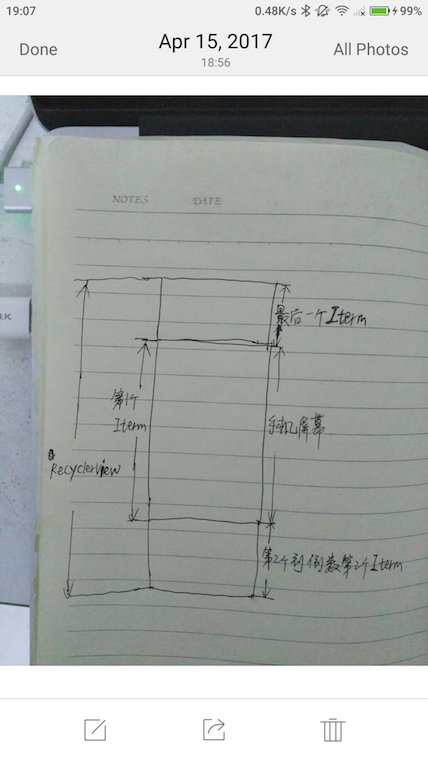 19:07
0.48K/s
99%
Done
Apr 15, 2017
18:56
All Photos
NOTES
DATE
最后一个Iterm
第1个
Iterm
手机屏幕
RecyclerView
第2个到倒数第2个Iterm